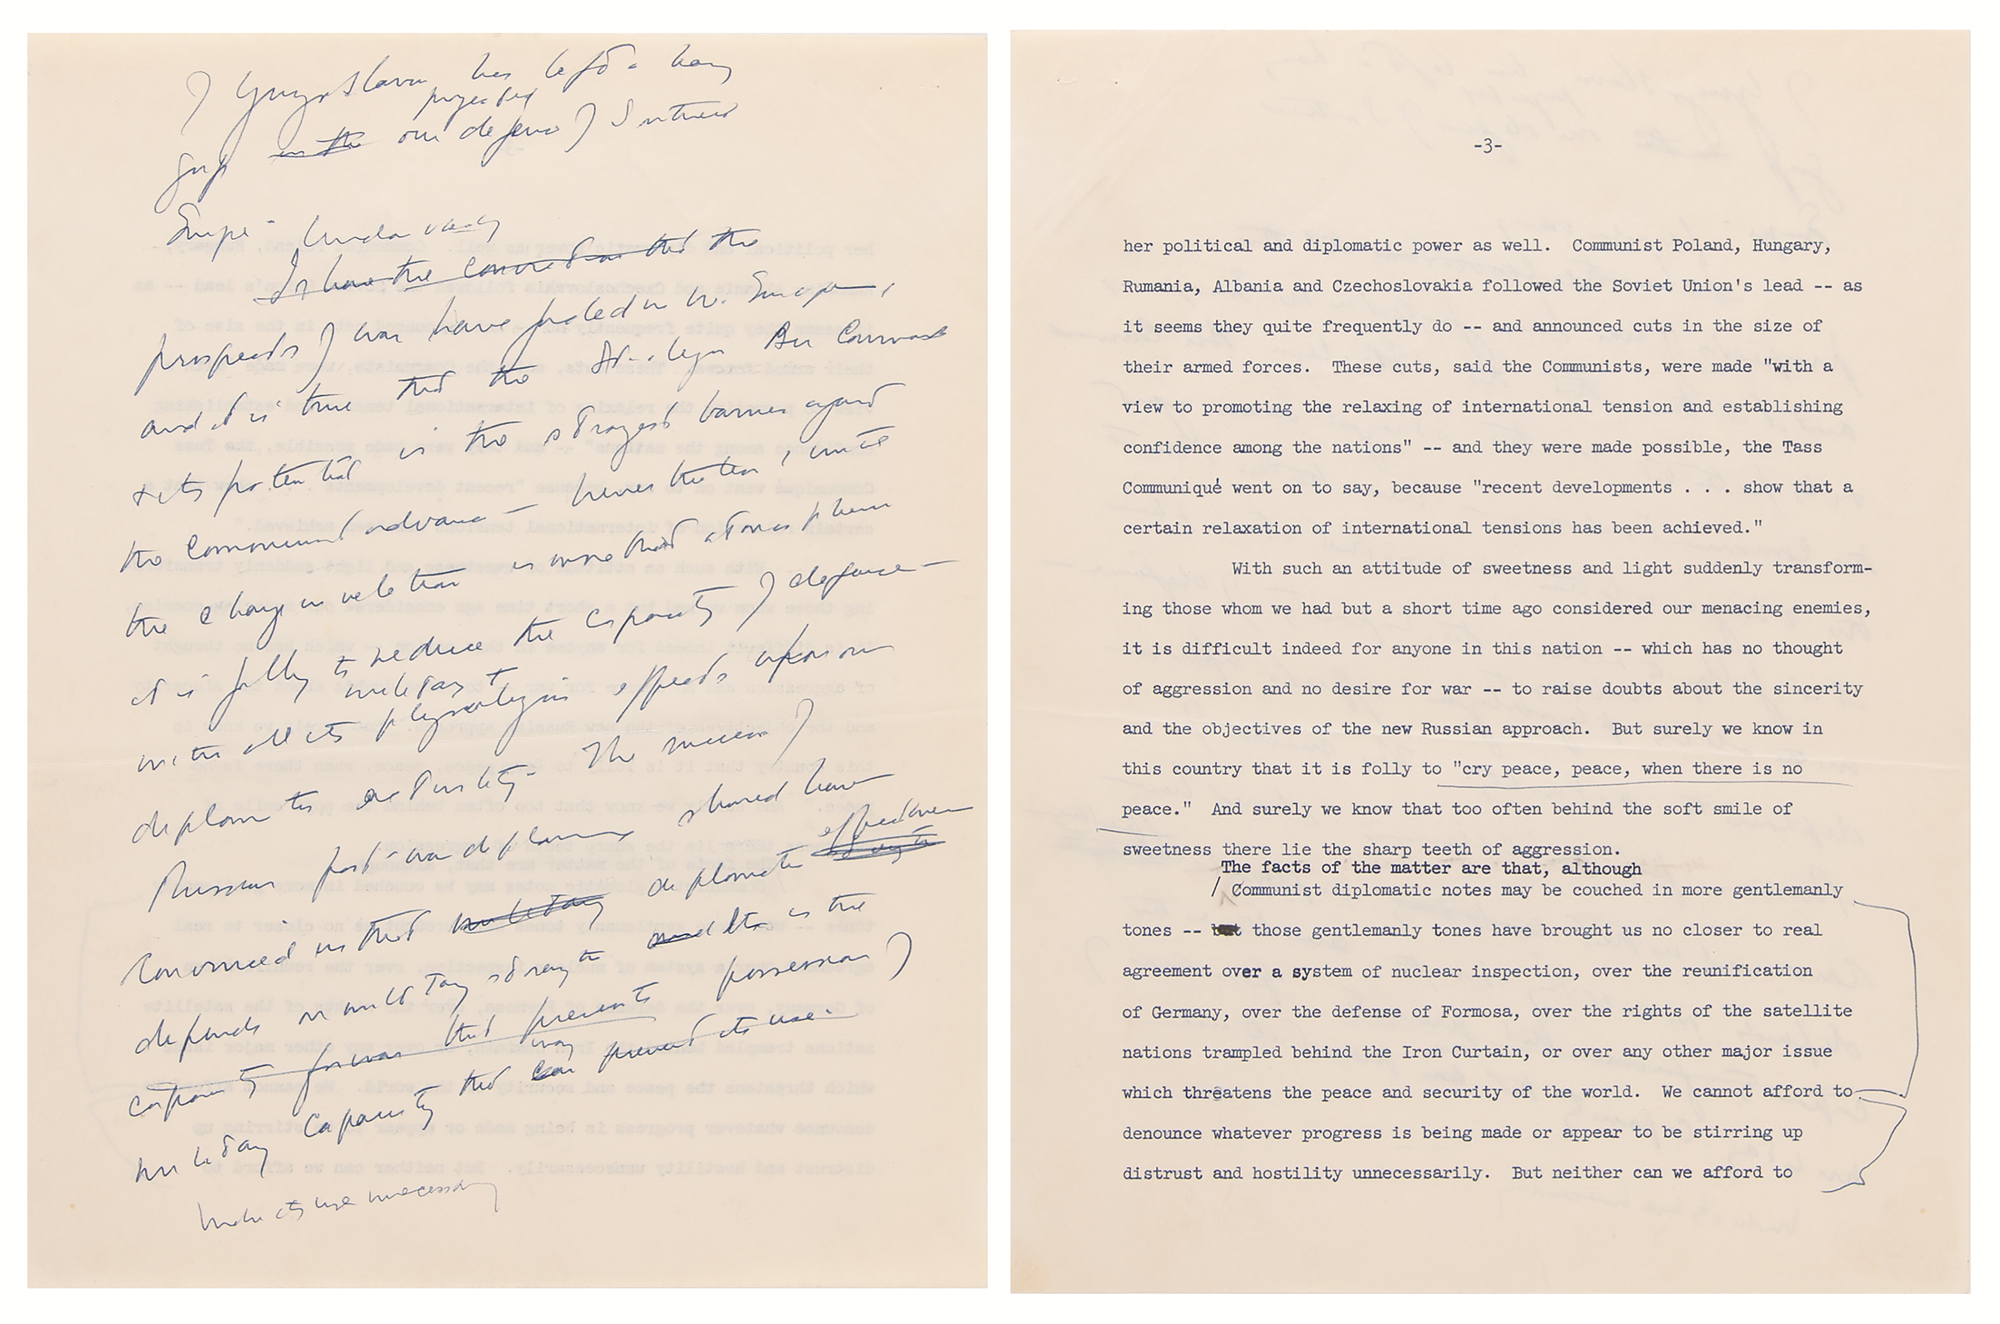 of Yugoslavia has left a heavy
projected
gap in the our defense of Southern
Europe - Undoubtedly
It has the connotation that the
prospects of war have faded in W. Europe,
and it is true that the Strategic Air Command
& its potential is the strongest barrier against
the Communist advance - nevertheless, until
the change in relation is more than atmosphere
it is folly to reduce the capacity of defense -
military &
with all its effects upon our
diplomatic activity - The success of
Russian post-war diplomacy should have
effectiveness
convinced us that military diplomatic strength
depends on military strength and it is the
capacity for war that prevents possession of
way
military capacity that can prevent its use.
makes its use unnecessary
-3-
her political and diplomatic power as well. Communist Poland, Hungary,
Rumania, Albania and Czechoslovakia followed the Soviet Union's lead -- as
it seems they quite frequently do -- and announced cuts in the size of
their armed forces. These cuts, said the Communists, were made "with a
view to promoting the relaxing of international tension and establishing
confidence among the nations" -- and they were made possible, the Tass
Communiqué went on to say, because "recent developments . . . show that a
certain relaxation of international tensions has been achieved."
With such an attitude of sweetness and light suddenly transform-
ing those whom we had but a short time ago considered our menacing enemies,
it is difficult indeed for anyone in this nation -- which has no thought
of aggression and no desire for war -- to raise doubts about the sincerity
and the objectives of the new Russian approach. But surely we know in
this country that it is folly to "cry peace, peace, when there is no
peace." And surely we know that too often behind the soft smile of
sweetness there lie the sharp teeth of aggression.
The facts of the matter are that, although
/ Communist diplomatic notes may be couched in more gentlemanly
tones -- but those gentlemanly tones have brought us no closer to real
agreement over a system of nuclear inspection, over the reunification
of Germany, over the defense of Formosa, over the rights of the satellite
nations trampled behind the Iron Curtain, or over any other major issue
which threatens the peace and security of the world. We cannot afford to
denounce whatever progress is being made or appear to be stirring up
distrust and hostility unnecessarily. But neither can we afford to